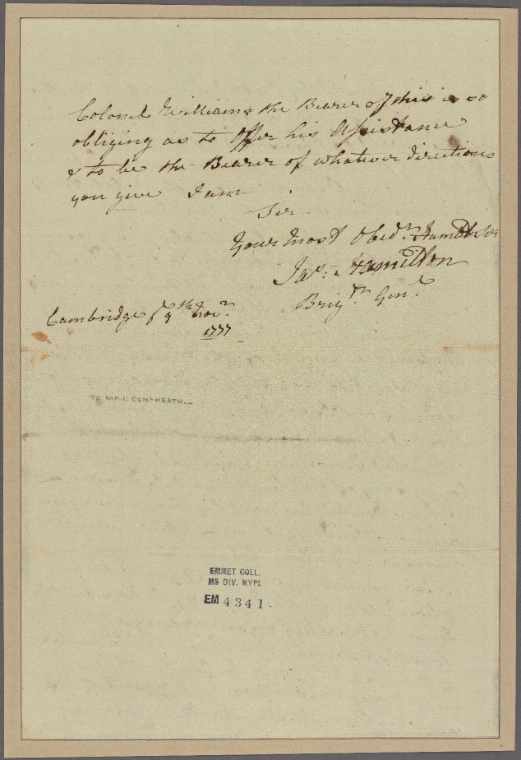 Colonel Williams the Bearer of this is so
obliging as to offer his Assistance
& to be the Bearer of whatever directions
you give I am
Sir
Your most Obedt. Humble Ser
Jas. Hamilton
Brigr. Genl.
Cambridge 9th Novr.
1777
TO MAJ: GENL HEATH.
EMMET COLL.
MS DIV. NYPL
EM 4341